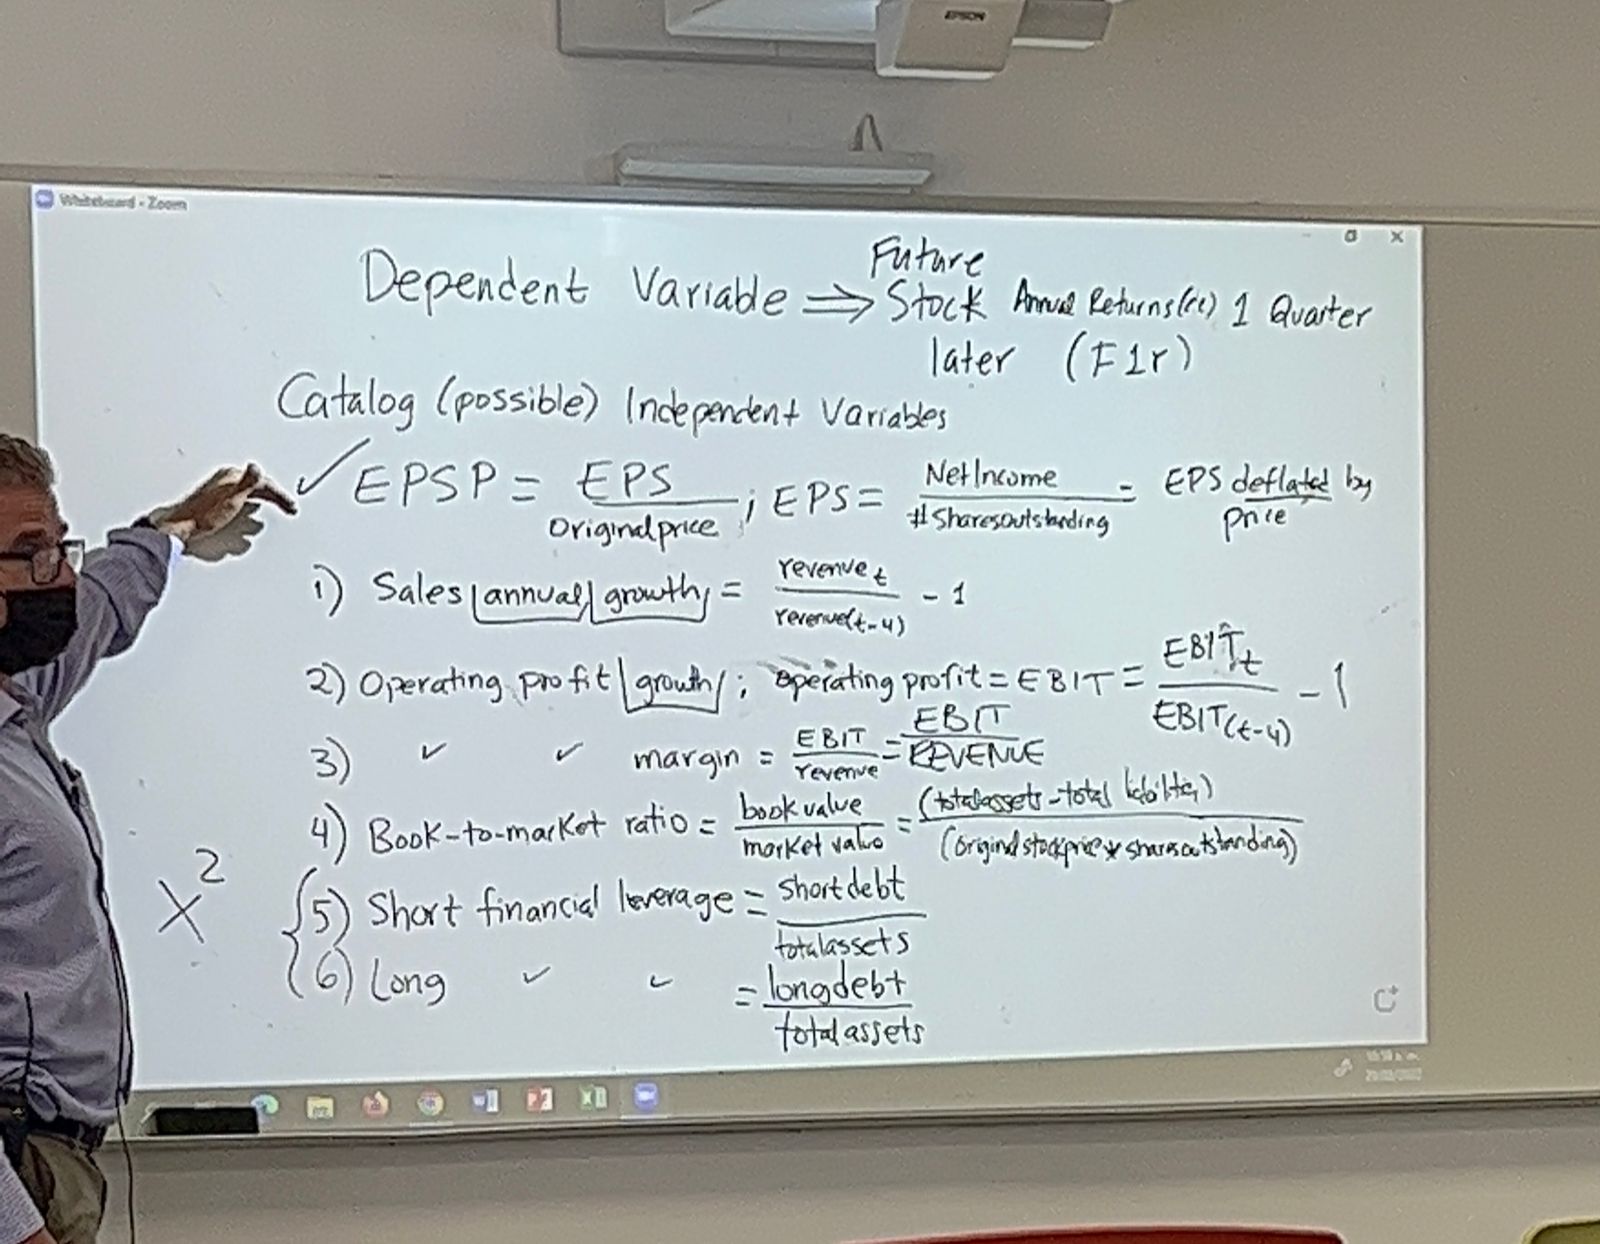 EPSON
Whiteboard - Zoom
Future
Dependent Variable ⇒ Stock Annual Returns(rc) 1 Quarter
later (F1r)
Catalog (possible) Independent Variables
✓ EPSP = EPS / Originalprice ; EPS = NetIncome / #Sharesoutstanding = EPS deflated by price
1) Sales annual growth = revenue t / revenue(t-4) - 1
2) Operating profit growth ; operating profit = EBIT = EBIT t / EBIT(t-4) - 1
3) ✓ ✓ margin = EBIT / revenue = EBIT / REVENUE
4) Book-to-market ratio = book value / market value = (totalassets - total liabilities) / (Original stockprice * sharesoutstanding)
X²
5) Short financial leverage = short debt / totalassets
6) Long ✓ ✓ = longdebt / total assets